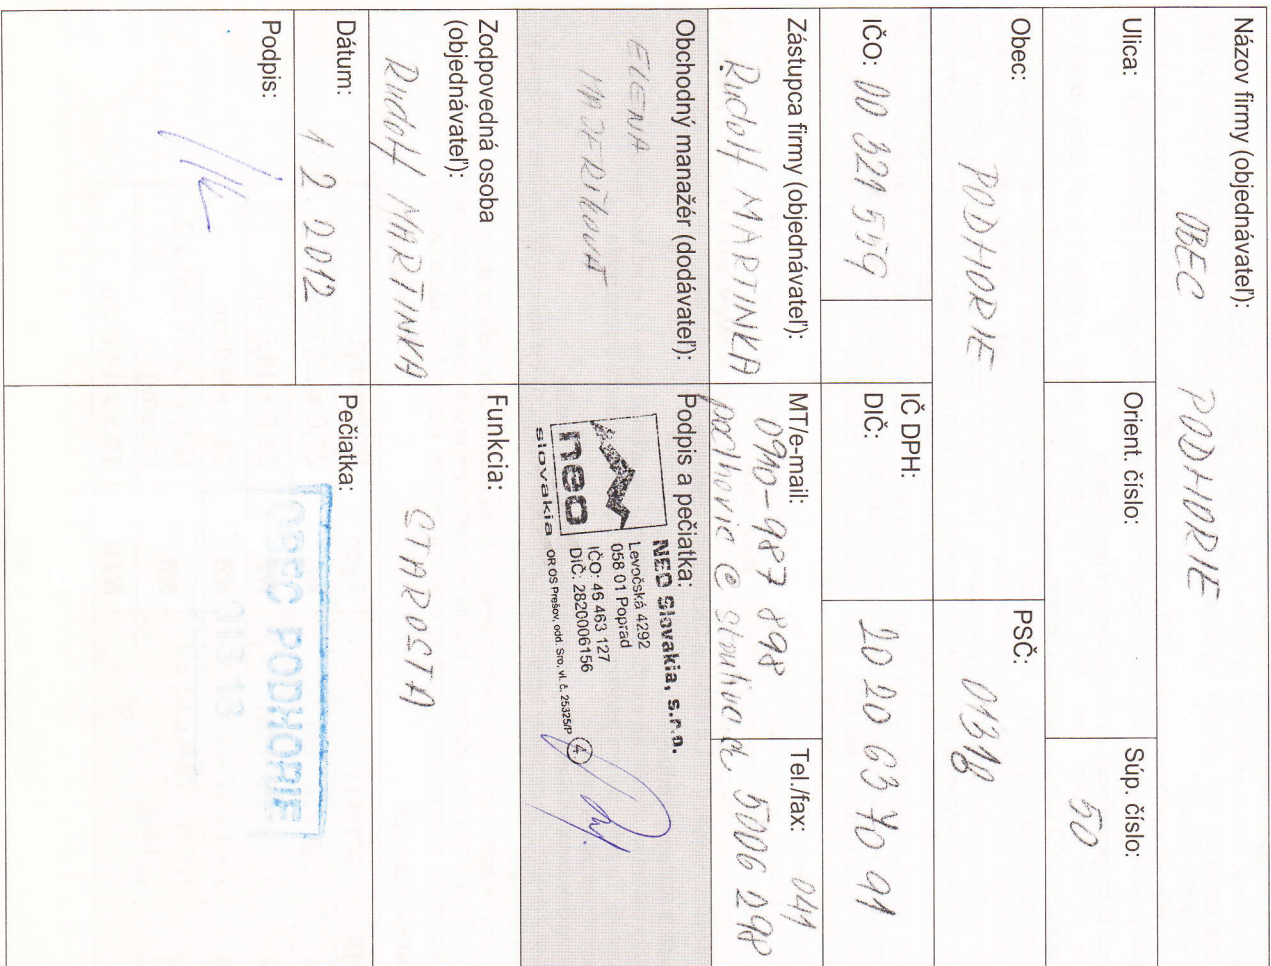 Názov firmy (objednávateľ):
OBEC PODHORIE
Ulica:
Orient. číslo:
Súp. číslo:
50
Obec:
PODHORIE
PSČ:
01318
IČO: 00 321 559
IČ DPH:
DIČ:
20 20 63 70 91
Zástupca firmy (objednávateľ):
Rudolf MARTINKA
MT/e-mail:
0910-987 898
Tel./fax:
041
5006 298
Obchodný manažér (dodávateľ):
ELENA
Podpis a pečiatka:
neo
slovakia
NEO Slovakia, s.r.o.
Levočská 4292
058 01 Poprad
IČO: 46 463 127
DIČ: 2820006156
OR OS Prešov, odd. Sro, vl. č. 25325/P
4
Zodpovedná osoba
(objednávateľ):
Rudolf MARTINKA
Funkcia:
STAROSTA
Dátum:
1. 2. 2012
Podpis:
Pečiatka:
OBEC PODHORIE
013 18